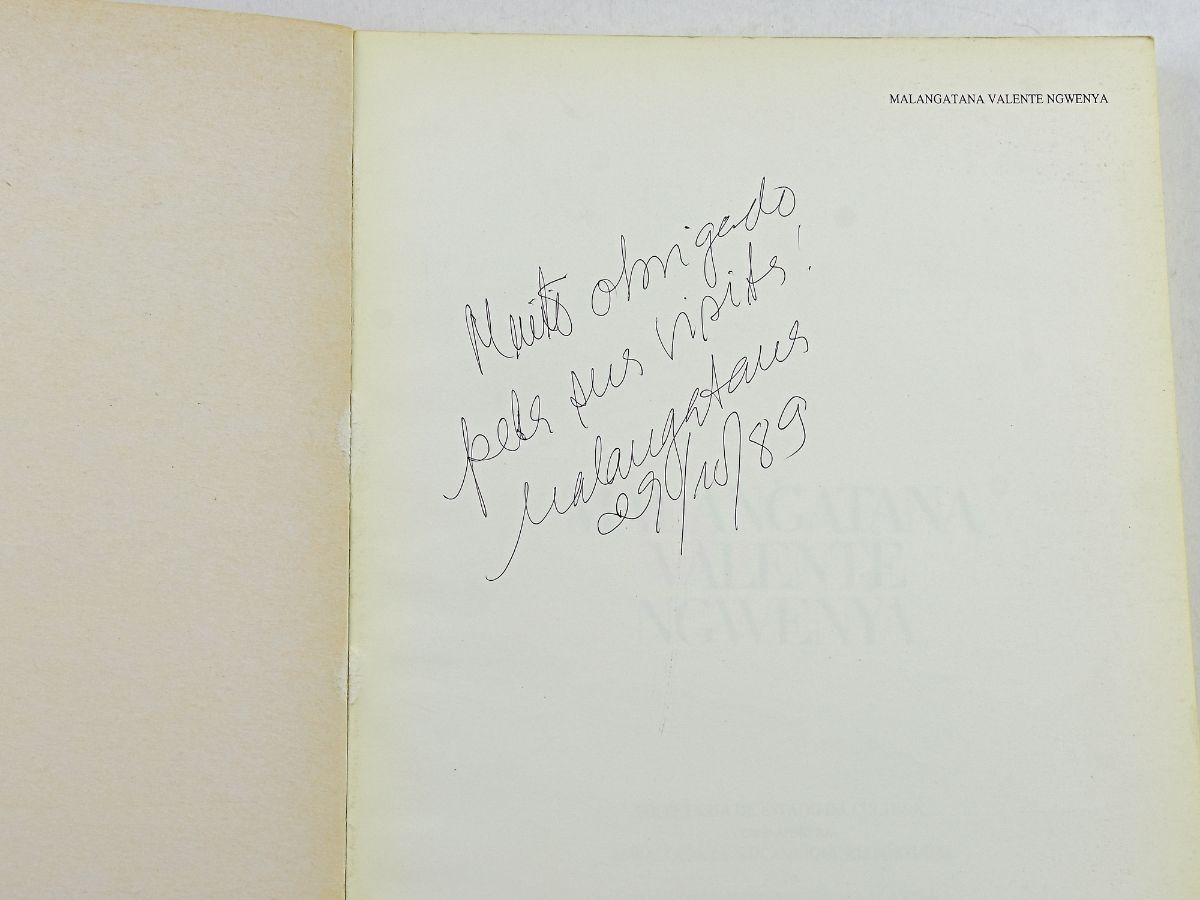 MALANGATANA VALENTE NGWENYA
Muito obrigado
pela sua visita!
Malangatana
29/10/89
MALANGATANA
VALENTE
NGWENYA